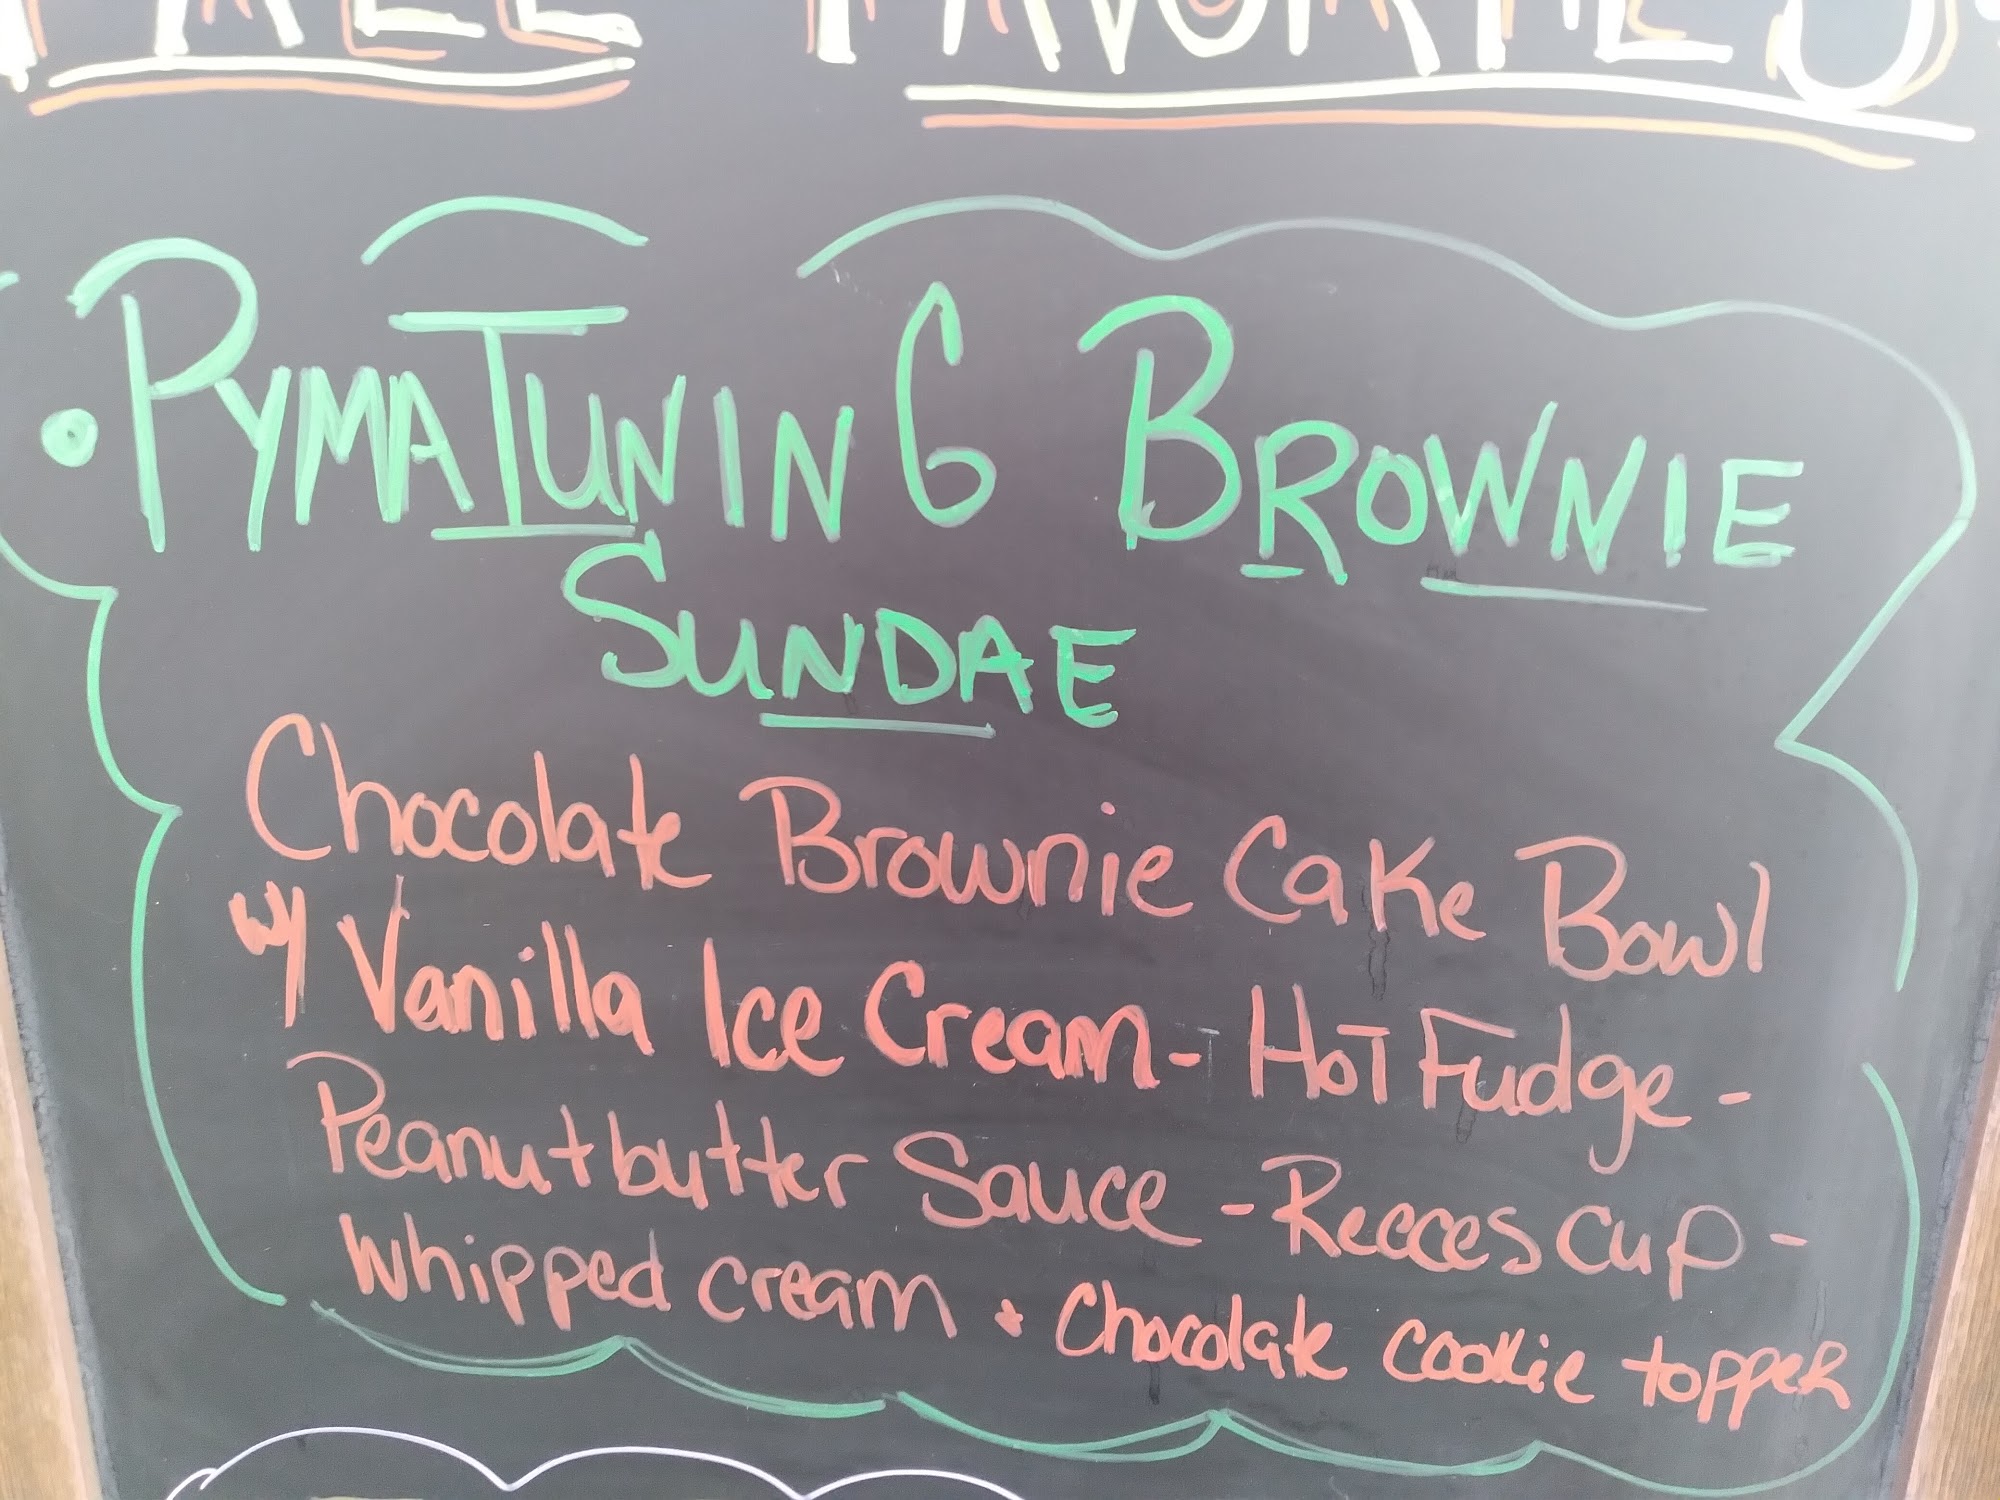 FALL FAVORITES
• PYMATUNING BROWNIE
SUNDAE
Chocolate Brownie Cake Bowl
w/ Vanilla Ice Cream - Hot Fudge -
Peanutbutter Sauce - Recces cup -
Whipped cream + Chocolate cookie topper